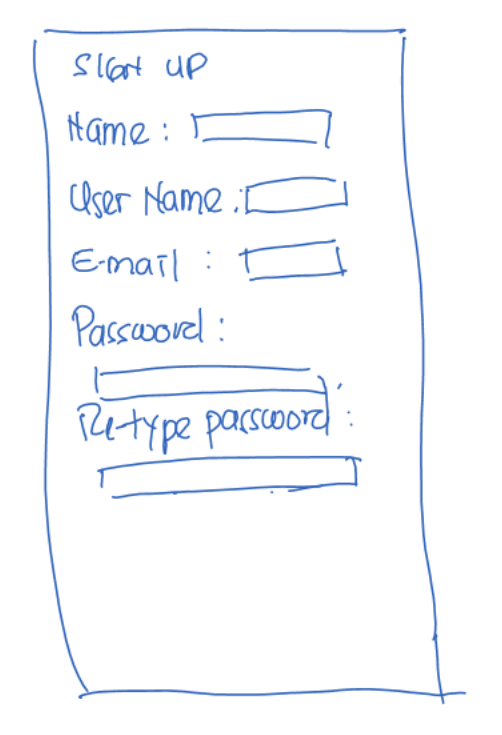 Start up
Name :
User Name :
E-mail :
Password :
Re-type password :